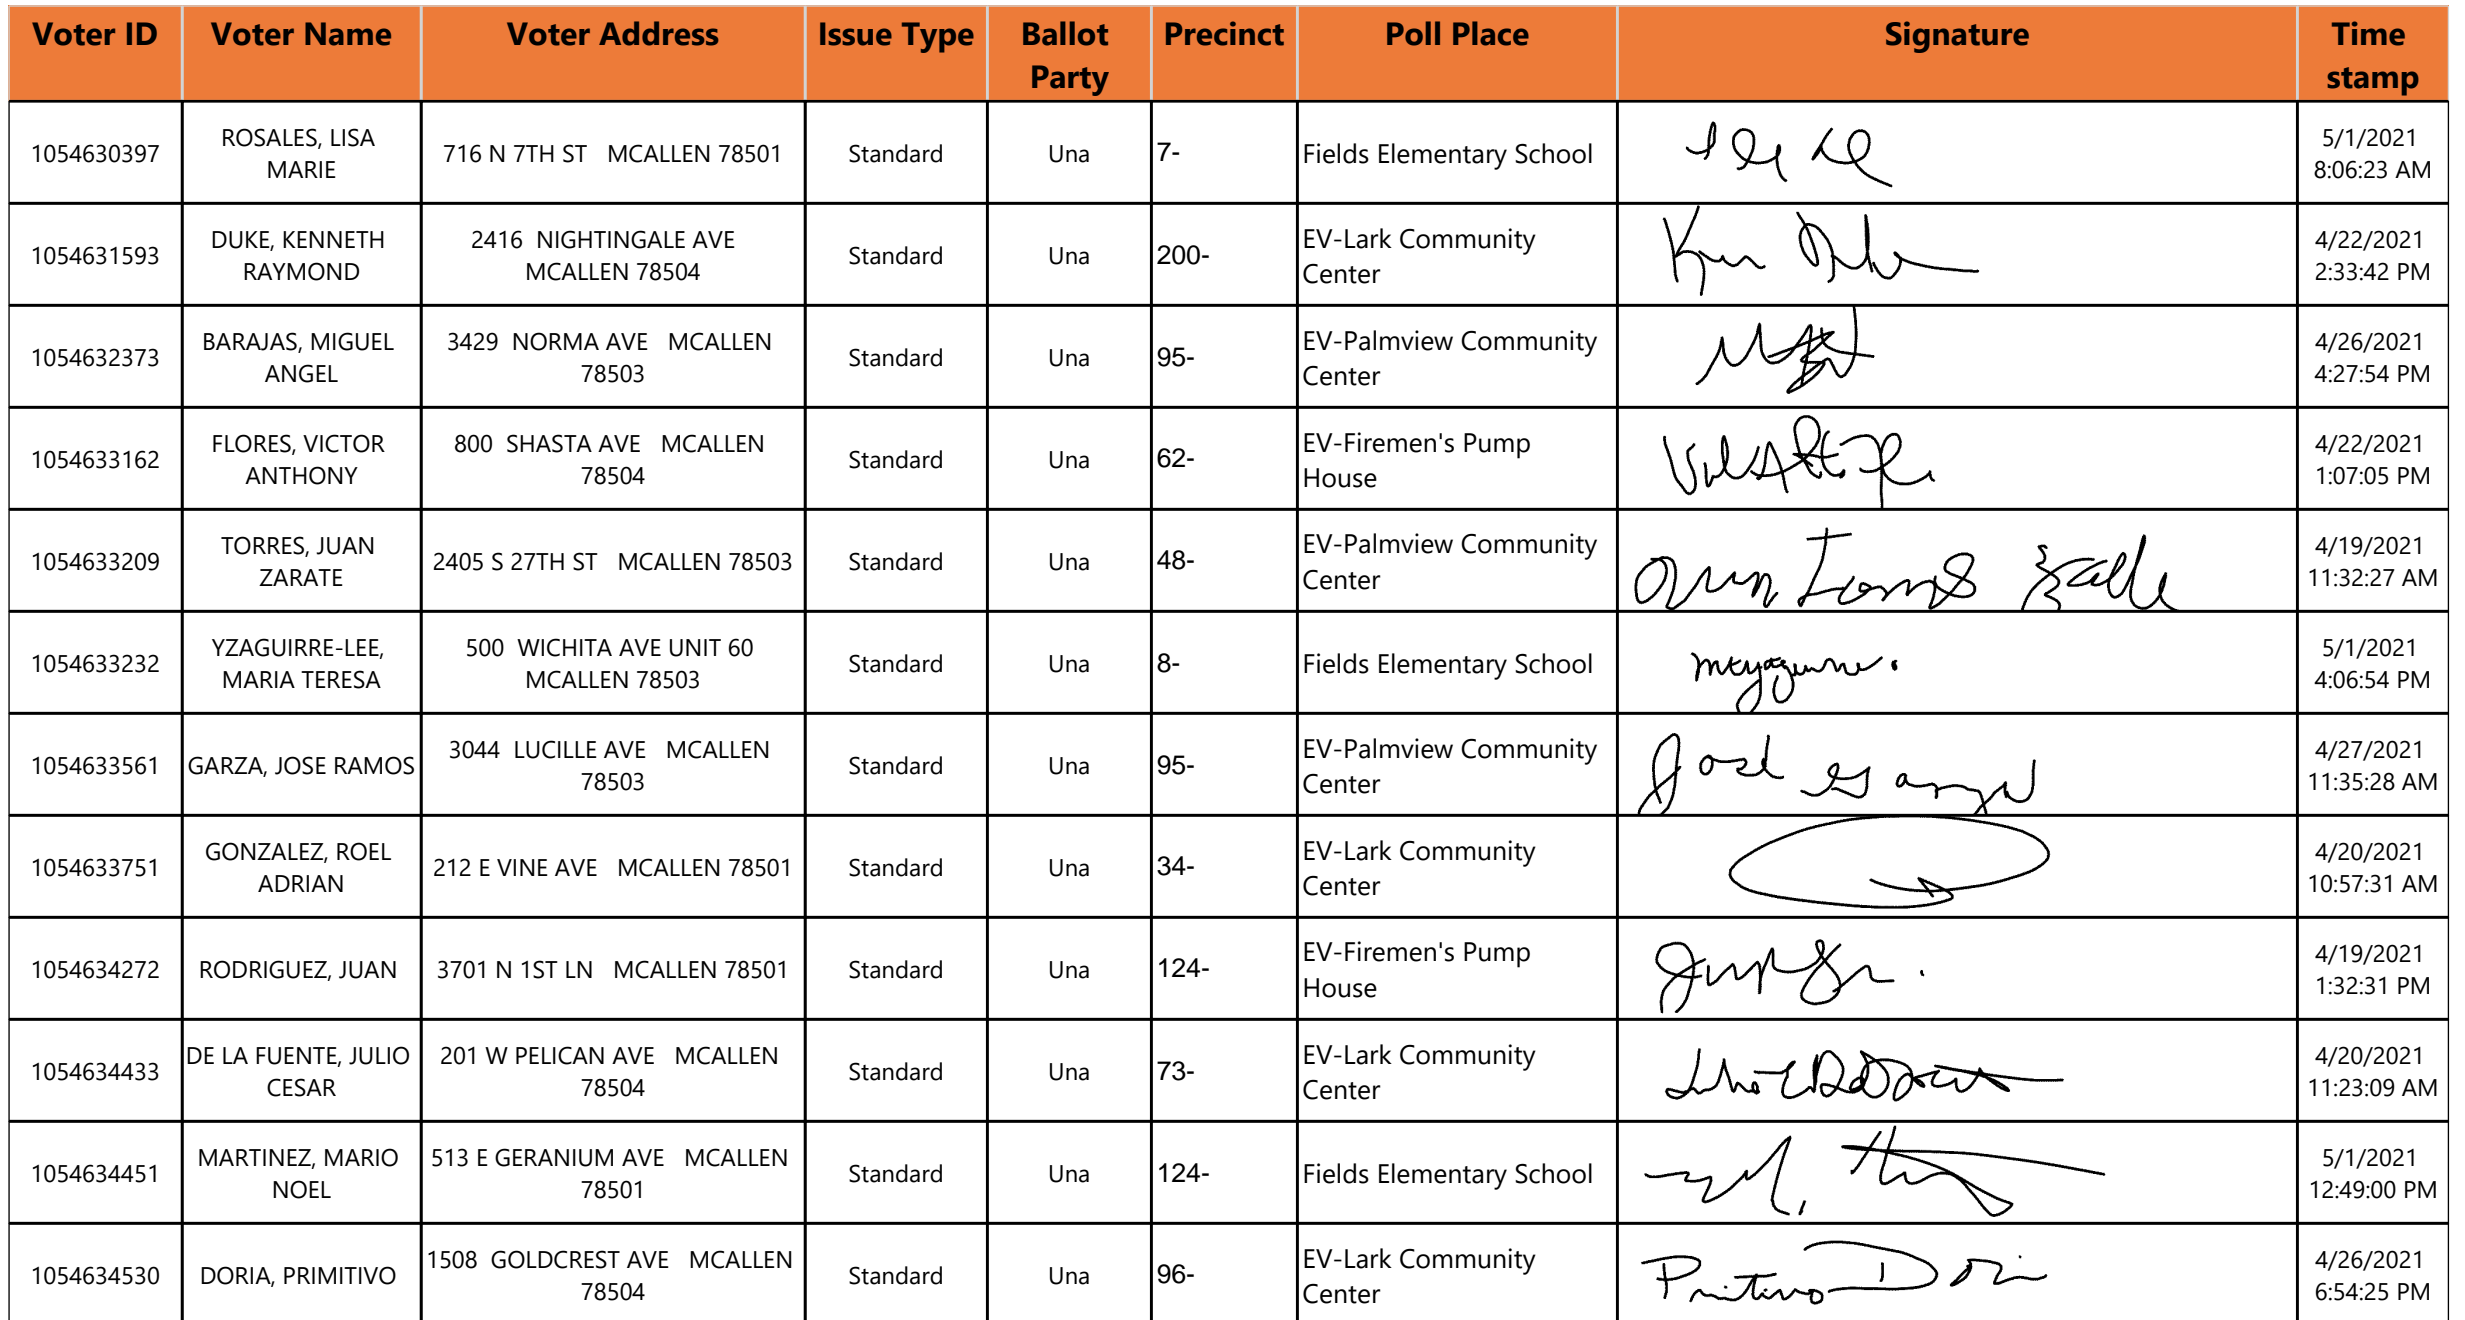 Voter ID Voter Name Voter Address Issue Type Ballot Party Precinct Poll Place Signature Time stamp
1054630397 ROSALES, LISA MARIE 716 N 7TH ST MCALLEN 78501 Standard Una 7- Fields Elementary School 5/1/2021 8:06:23 AM
1054631593 DUKE, KENNETH RAYMOND 2416 NIGHTINGALE AVE MCALLEN 78504 Standard Una 200- EV-Lark Community Center 4/22/2021 2:33:42 PM
1054632373 BARAJAS, MIGUEL ANGEL 3429 NORMA AVE MCALLEN 78503 Standard Una 95- EV-Palmview Community Center 4/26/2021 4:27:54 PM
1054633162 FLORES, VICTOR ANTHONY 800 SHASTA AVE MCALLEN 78504 Standard Una 62- EV-Firemen's Pump House 4/22/2021 1:07:05 PM
1054633209 TORRES, JUAN ZARATE 2405 S 27TH ST MCALLEN 78503 Standard Una 48- EV-Palmview Community Center 4/19/2021 11:32:27 AM
1054633232 YZAGUIRRE-LEE, MARIA TERESA 500 WICHITA AVE UNIT 60 MCALLEN 78503 Standard Una 8- Fields Elementary School 5/1/2021 4:06:54 PM
1054633561 GARZA, JOSE RAMOS 3044 LUCILLE AVE MCALLEN 78503 Standard Una 95- EV-Palmview Community Center 4/27/2021 11:35:28 AM
1054633751 GONZALEZ, ROEL ADRIAN 212 E VINE AVE MCALLEN 78501 Standard Una 34- EV-Lark Community Center 4/20/2021 10:57:31 AM
1054634272 RODRIGUEZ, JUAN 3701 N 1ST LN MCALLEN 78501 Standard Una 124- EV-Firemen's Pump House 4/19/2021 1:32:31 PM
1054634433 DE LA FUENTE, JULIO CESAR 201 W PELICAN AVE MCALLEN 78504 Standard Una 73- EV-Lark Community Center 4/20/2021 11:23:09 AM
1054634451 MARTINEZ, MARIO NOEL 513 E GERANIUM AVE MCALLEN 78501 Standard Una 124- Fields Elementary School 5/1/2021 12:49:00 PM
1054634530 DORIA, PRIMITIVO 1508 GOLDCREST AVE MCALLEN 78504 Standard Una 96- EV-Lark Community Center 4/26/2021 6:54:25 PM